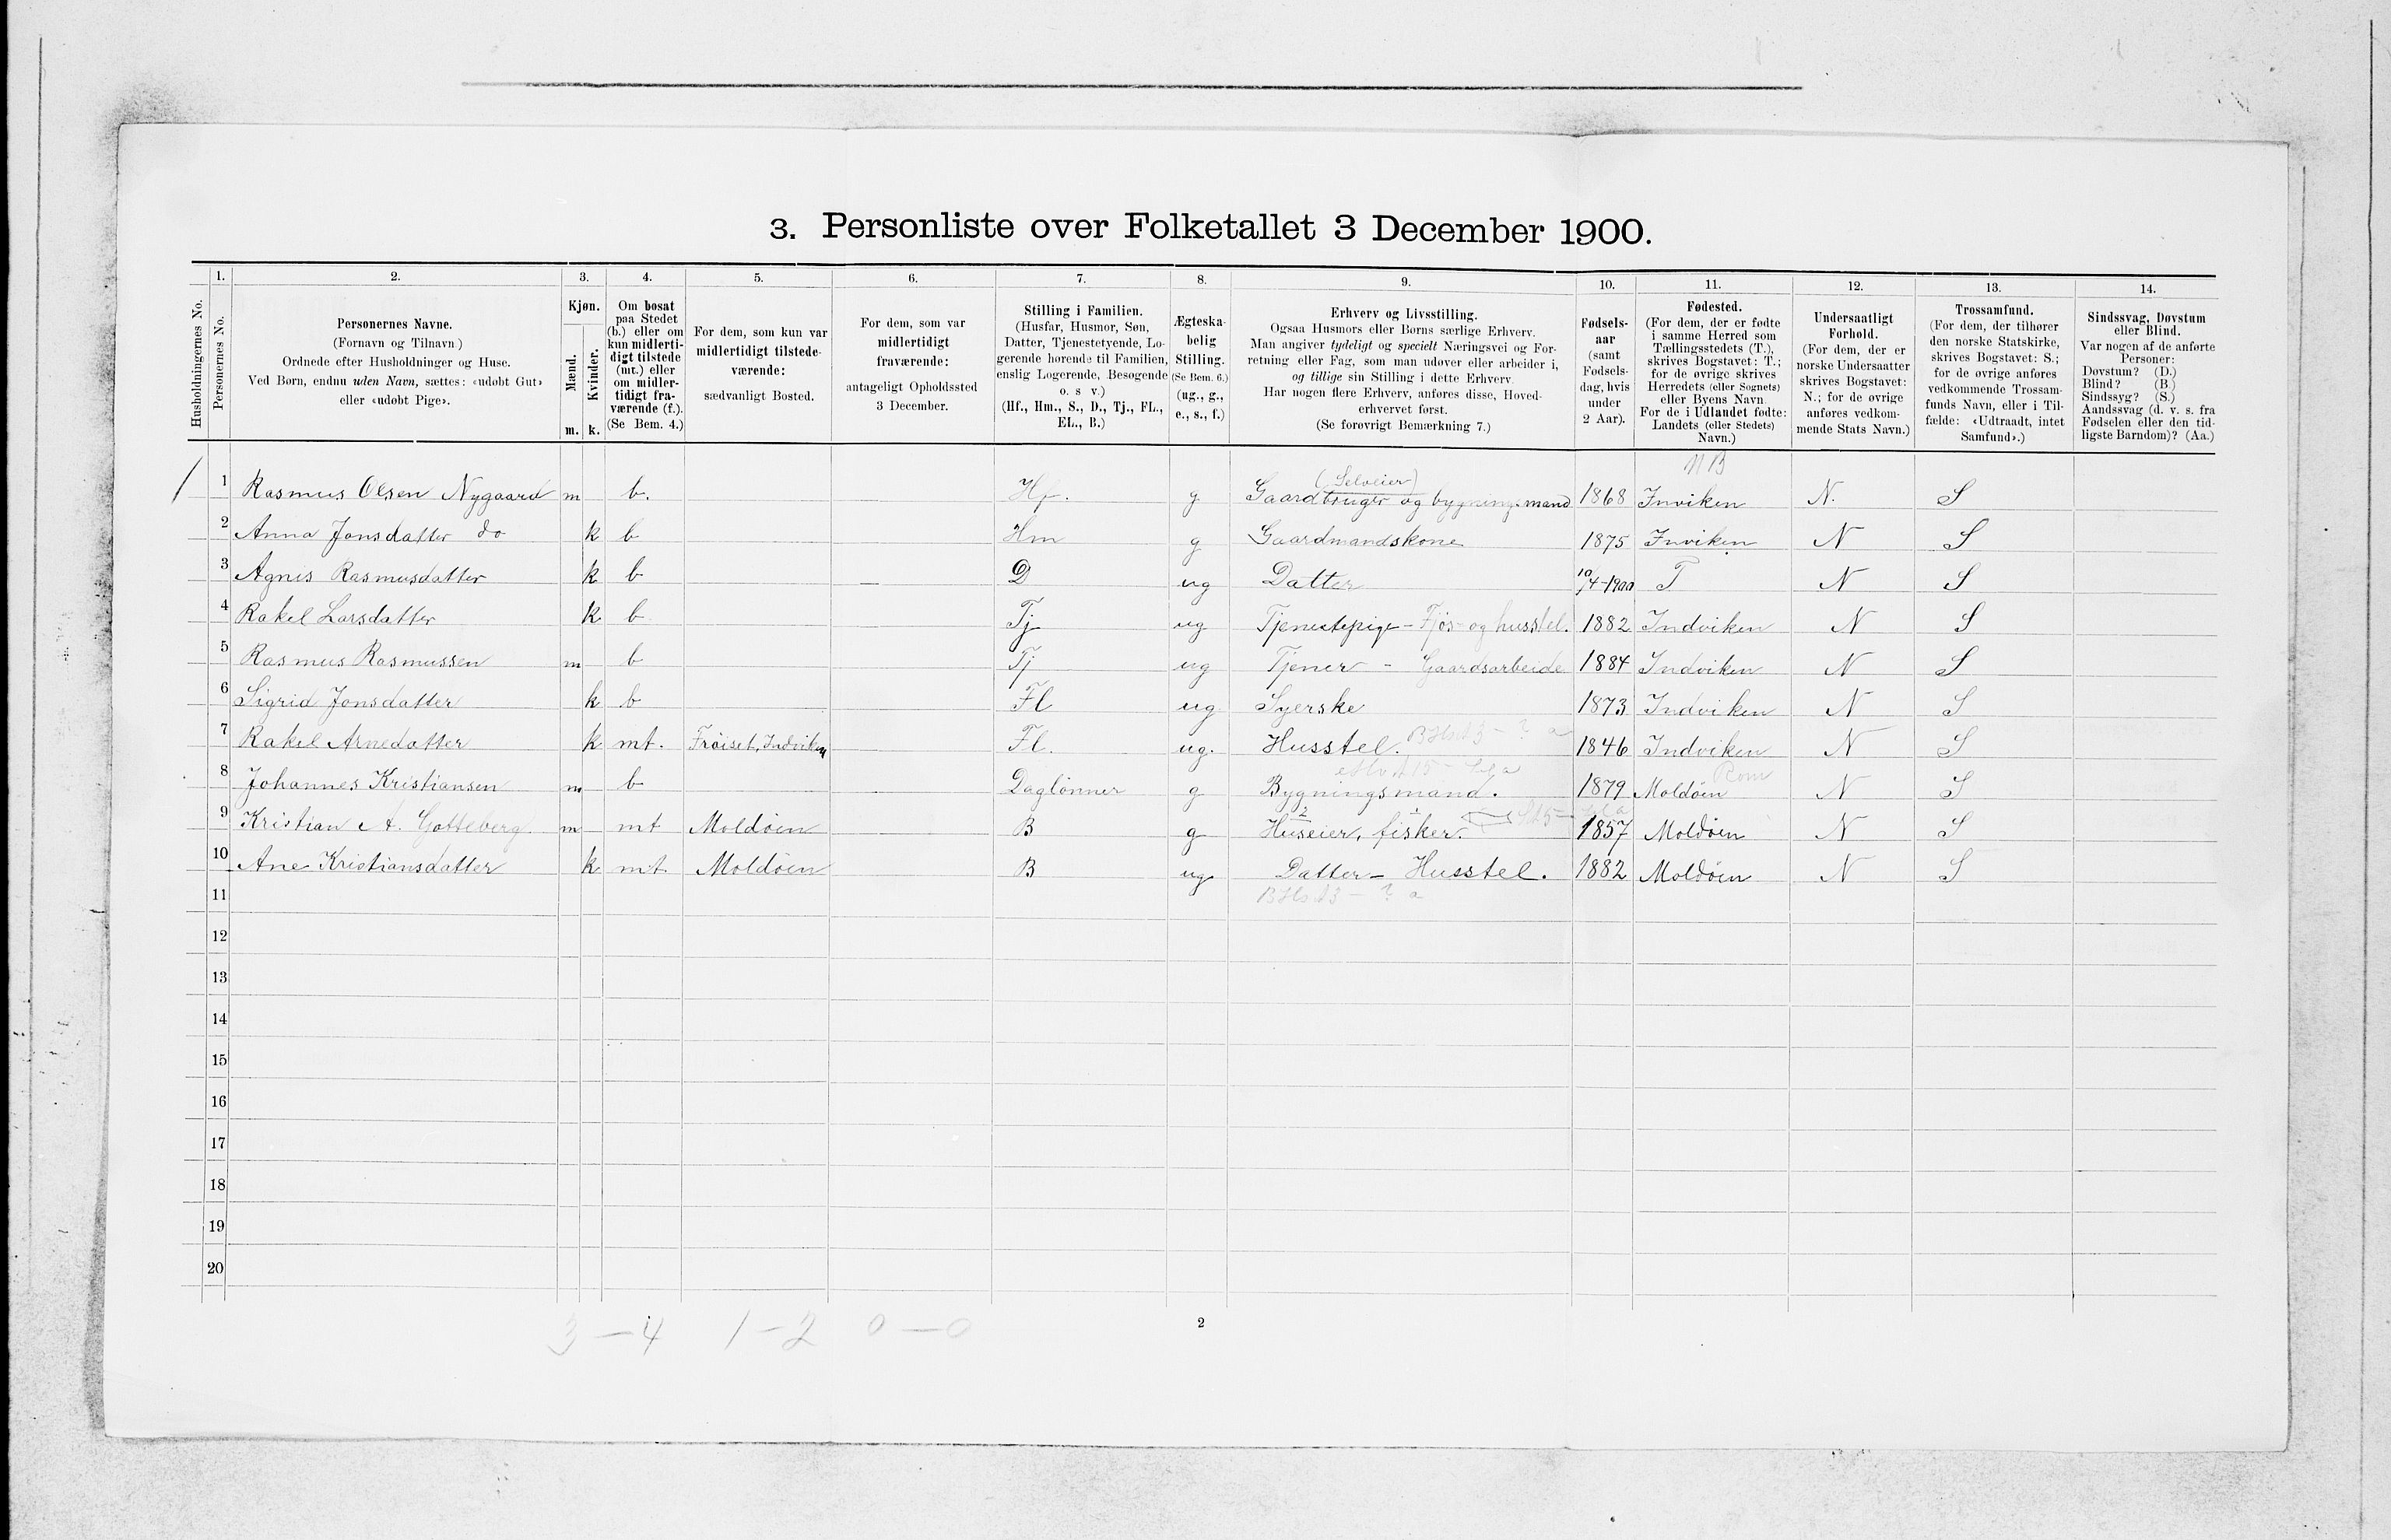 3. Personliste over Folketallet 3 December 1900.
1. 2. 3. 4. 5. 6. 7. 8. 9. 10. 11. 12. 13. 14.
Husholdningernes No.
Personernes No.
Personernes Navne.
(Fornavn og Tilnavn)
Ordnede efter Husholdninger og Huse.
Ved Børn, endnu uden Navn, sættes: «udøbt Gut»
eller «udøbt Pige».
Kjøn.
Mænd.
Kvinder.
m. k.
Om bosat
paa Stedet
(b.) eller om
kun midlerti-
digt tilstede
(mt.) eller
om midler-
tidigt fra-
værende (f.).
(Se Bem. 4.)
For dem, som kun var
midlertidigt tilstede-
værende:
sædvanligt Bosted.
For dem, som var
midlertidigt
fraværende:
antageligt Opholdssted
3 December.
Stilling i Familien.
(Husfar, Husmor, Søn,
Datter, Tjenestetyende, Lo-
gerende hørende til Familien,
enslig Logerende, Besøgende
o. s v.)
(Hf., Hm., S., D., Tj., FL.,
EL., B.)
Ægteska-
belig
Stilling.
(Se Bem. 6.)
(ug., g.,
e., s., f.)
Erhverv og Livsstilling.
Ogsaa Husmors eller Børns særlige Erhverv.
Man angiver tydeligt og specielt Næringsvei og For-
retning eller Fag, som man udøver eller arbeider i,
og tillige sin Stilling i dette Erhverv.
Har nogen flere Erhverv, anføres disse, Hoved-
erhvervet først.
(Se forøvrigt Bemærkning 7.)
Fødsels-
aar
(samt
Fødsels-
dag, hvis
under
2 Aar).
Fødested.
(For dem, der er fødte
i samme Herred som
Tællingsstedets (T.),
skrives Bogstavet: T.;
for de øvrige skrives
Herredets (eller Sognets)
eller Byens Navn.
For de i Udlandet fødte:
Landets (eller Stedets)
Navn.)
Undersaatligt
Forhold.
(For dem, der er
norske Undersaatter
skrives Bogstavet:
N.; for de øvrige
anføres vedkom-
mende Stats Navn.)
Trossamfund.
(For dem, der tilhører
den norske Statskirke,
skrives Bogstavet: S.;
for de øvrige anføres
vedkommende Trossam-
funds Navn, eller i Til-
fælde: «Udtraadt, intet
Samfund».)
Sindssvag, Døvstum
eller Blind.
Var nogen af de anførte
Personer:
Døvstum? (D.)
Blind? (B.)
Sindssyg? (S.)
Aandssvag (d. v. s. fra
Fødselen eller den tid-
ligste Barndom)? (Aa.)
NB
(Selveier)
1 1 Rasmus Olsen Nygaard m b. Hf. g Gaardbruger og bygningsmand 1868 Inviken N. S
2 Anna Jonsdatter do k b Hm g Gaardmandskone 1875 Inviken N S
3 Agnis Rasmusdatter k b D ug Datter 10/4-1900 T N S
4 Rakel Larsdatter k b Tj ug Tjenestepige - Fjøs- og husstel. 1882 Indviken N S
5 Rasmus Rasmussen m b Tj ug Tjener - Gaardsarbeide 1884 Indviken N S
6 Sigrid Jonsdatter k b Fl ug Syerske 1873 Indviken N S
7 Rakel Arnedatter k mt. Frøiset, Indviken Fl. ug. Husstel. 1846 Indviken N S
8 Johannes Kristiansen m b Daglønner g Bygningsmand. 1879 Moldøen N S
9 Kristian A. Gotteberg m mt Moldøen B g Huseier, fisker. 1857 Moldøen N S
10 Ane Kristiansdatter k mt. Moldøen B ug Datter - Husstel. 1882 Moldøen N S
11
12
13
14
15
16
17
18
19
20
3 - 4 1 - 2 0 - 0
2